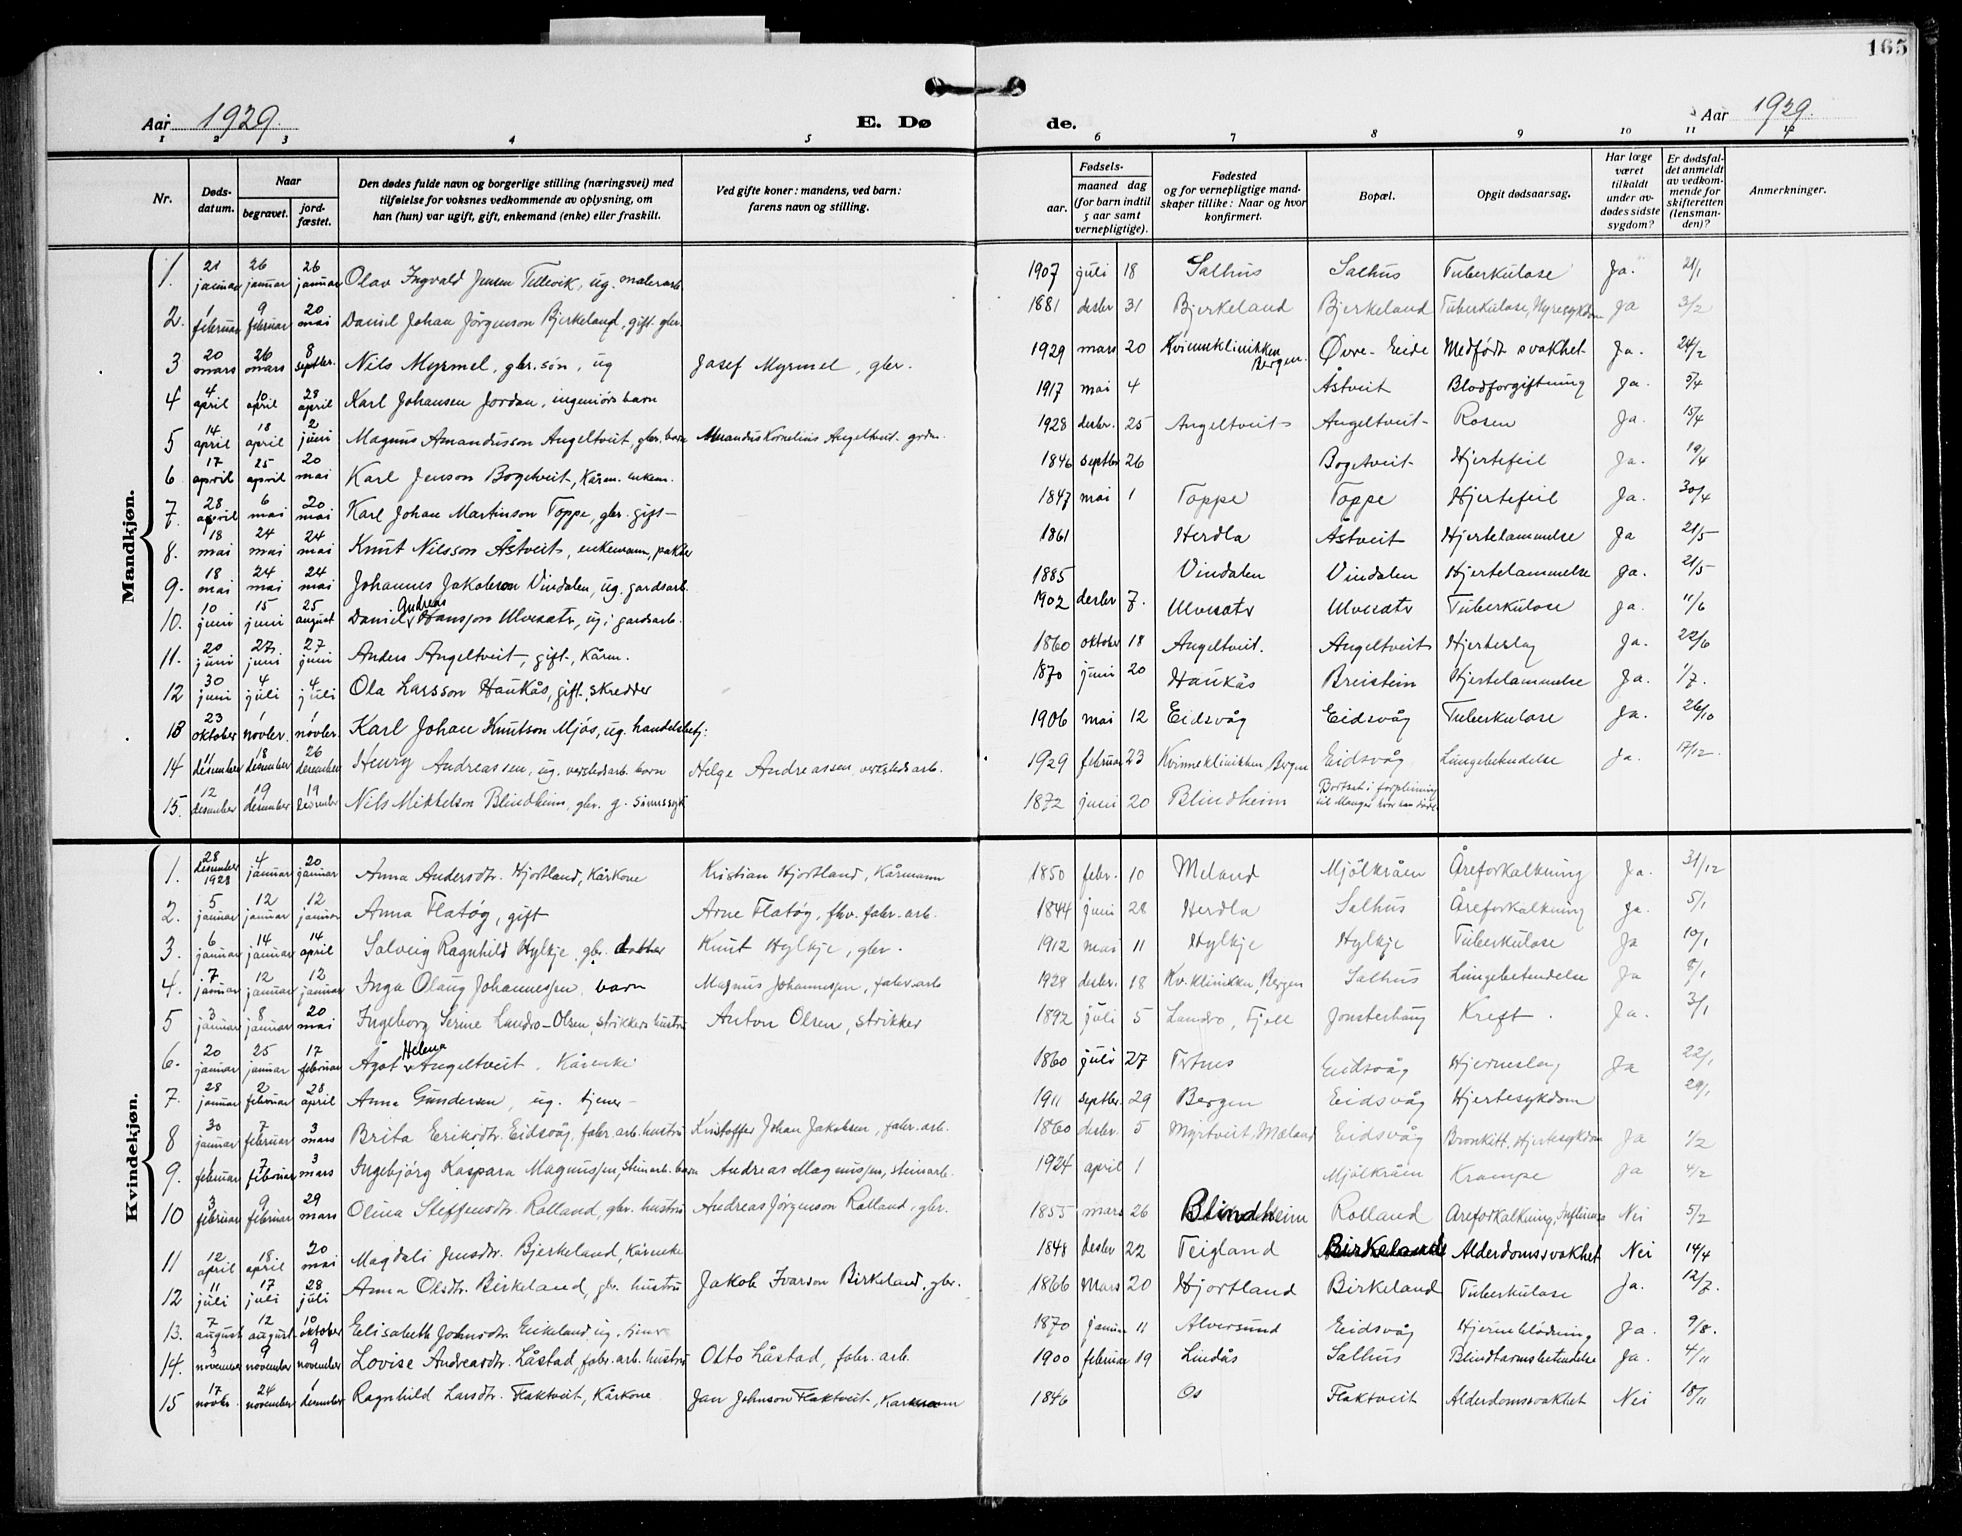 165
Aar 1929. E. Dø de. Aar 1929.
1 2 3 4 5 6 7 8 9 10 11 12
Nr. Døds-datum. Naar begravet. jord-fæstet. Den dødes fulde navn og borgerlige stilling (næringsvei) med tilføielse for voksnes vedkommende av oplysning, om han (hun) var ugift, gift, enkemand (enke) eller fraskilt. Ved gifte koner: mandens, ved barn: farens navn og stilling. Fødsels- aar. maaned dag (for barn indtil 5 aar samt vernepligtige). Fødested og for vernepligtige mand-skaper tillike: Naar og hvor konfirmert. Bopæl. Opgit dødsaarsag. Har læge været tilkaldt under av-dødes sidste sygdom? Er dødsfal-det anmeldt av vedkom-mende for skifteretten (lensman-den)? Anmerkninger.
Mandkjøn.
1. 21 januar 26 januar 26 januar Olav Ingvald Jensen Tellevik, ug. malerarb. 1907 juli 18 Salhus Salhus Tuberkulose Ja. 21/1
2. 1 februar 9 februar 20 mai Daniel Johan Jørgenson Bjerkeland, gift. gbr. 1881 desbr 31 Bjerkeland Bjerkeland Tuberkulose, Nyresykdom Ja 3/2
3 20 mars 26 mars 8 septbr. Nils Myrmel, gbr. søn, ug Josef Myrmel, gbr. 1929 mars 20 Kvinneklinikken Bergen. Øvre-Eide Medfødt svakhet Ja. 24/2
4 4 april 10 april 28 april Karl Johansen Jordan, ingeniørs barn 1917 mai 4 Åstveit Blodforgiftning Ja. 5/4
5 14 april 18 april 2 juni Magnus Amandusson Angeltveit, gbr. barn Amandus Kornelius Angeltveit. grdm. 1928 desbr. 25 Angeltveit Angeltveit Rosen Ja. 15/4
6. 17 april 25 april 20 mai Karl Jenson Bogetveit, Kårm. enkem. 1846 septbr 26 Bogetveit Hjertefeil Ja. 19/4
7. 28 april 6 mai 20 mai Karl Johan Martinson Toppe, gbr. gift 1847 mai 1 Toppe Toppe Hjertefeil Ja. 30/4
8. 18 mai 24 mai 24 mai Knut Nilsson Åstveit, enkemann, pakter 1861 Herdla Åstveit Hjertelammelse Ja 21/5
9. 18 mai 24 mai 24 mai Johannes Jakobson Vindalen, ug. gardsarb. 1885 Vindalen Vindalen Hjertelammelse Ja. 21/5
10. 10 juni 15 juni 25 august Daniel Andreas Hansson Ulvesætr, ug. gardsarb. 1902 desbr 7. Ulvesætr Ulvesætr Tuberkulose Ja. 11/6
11. 20 juni 27 juni 27 juni Anders Angeltveit, gift, Kårm. 1860 oktober 18 Angeltveit. Angeltveit Hjerteslag Ja. 22/6
12 30 juni 4 juli 4 juli Ola Larsson Haukås, gift, skredder 1870 juni 20 Haukås Breistein Hjertelammelse Ja. 1/7.
13 23 oktober 1 novbr. 1 novbr. Karl Johan Knutson Mjøs, ug. handelsbetj: 1906 mai 12 Eidsvåg Eidsvåg Tuberkulose Ja. 26/10
14 11 desember 18 desember 26 desember Henry Andreassen, ug. verkstedsarb. barn Helge Andreassen verkstedsarb. 1929 februar 23 Kvinneklinikken, Bergen Eidsvåg Lungebetendelse Ja. 17/12.
15. 12 desember 19 desember 19 desember Nils Mikkelson Blindheim, gbr. g. sinnssyk 1872 juni 20 Blindheim Bortsat i forpleining til Manger hvor han døde
Kvindekjøn.
1. 28 desember 1928 4 januar 20 januar Anna Andersdtr. Hjortland, Kårkone Kristian Hjortland, Kårmann 1850 febr. 10 Meland Mjølkråen Åreforkalkning Ja. 31/12
2. 5 januar 12 januar 12 januar Anna Flatøy, gift Arne Flatøy, fhv. fabr. arb. 1844 juni 28 Herdla Salhus Åreforkalkning Ja. 5/1
3. 6 januar 14 januar 14 april Solveig Ragnhild Hylkje, gbr. datter Knut Hylkje, gbr. 1912 mai 11 Hylkje Hylkje Tuberkulose Ja 10/1
4. 7 januar 12 januar 12 januar Inga Olaug Johannessen, barn Magnus Johannessen, fabr. arb 1928 desbr. 18 Kv. klinikken, Bergen Salhus Lungebetendelse Ja 8/1
5 3 januar 8 januar 20 mai Ingeborg Serine Landro-Olsen, strikkers hustru Anton Olsen, strikker 1892 juli 5 Landro, Fjell Jonsterhaug Kreft. Ja. 3/1
6. 20 januar 25 januar 17 februar Ågot Helena Angeltveit. Kårenke 1860 juli 27 Tertnes Eidsvåg Hjerneslag Ja 22/1
7. 28 januar 2 februar 28 april Anna Gundersen, ug. tjener 1911 septbr. 29 Bergen Eidsvåg Hjertesykdom 29/1
8 30 januar 7 februar 3 mars Brita Eriksdtr. Eidsvåg, fabr. arb. hustru Kristoffer Johan Jakobsen, fabr. arb. 1860 desbr. 5 Myrtveit, Mæland Eidsvåg Bronkitt, Hjertesykdom Ja 1/2
9. februar 7 februar 3 mars Ingebjørg Kaspara Magnussen, steinarb. barn Andreas Magnussen, steinarb. 1924 april 1 Mjølkråen Krampe Ja 4/2
10 3 februar 9 februar 29 mars Olina Steffensdtr. Rolland, gbr. hustru Andreas Jørgenson Rolland, gbr. 1855 mars 26 Blindheim Rolland Åreforkalkning, Influensa Nei 5/2
11 12 april 18 april 20 mai Magdali Jensdtr. Bjerkeland, Kårenke 1848 desbr 22 Teigland Birkeland Alderdomssvakhet Nei 14/4
12 11 juli 17 juli 28 juli Anna Olsdtr. Birkeland, gbr. hustru Jakob Ivarson Birkeland, gbr. 1866 Mars 20 Hjortland Birkeland Tuberkulose Ja. 12/7.
13. 7 august 12 august 10 oktober Elisabeth Johnsdtr. Eikeland, ug. tjener 1870 januar 11 Alversund Eidsvåg Hjerneblødning Ja. 9/8.
14. 3 november 9 november 9 november Lovise Andreasdtr. Låstad, fabr. arb. hustru Otto Låstad, fabr. arb. 1900 februar 19 Lindås Salhus Blindtarmsbetendelse Ja. 4/11
15 17 novbr. 24 november 1 desember Ragnhild Larsdtr. Flaktveit, Kårkone Jan Johnson Flaktveit, Karmann 1846 Os Flaktveit Alderdomssvakhet Nei 18/11